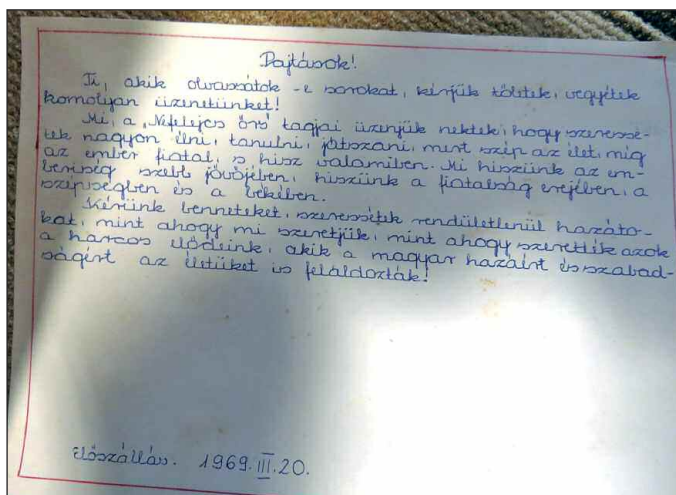 Pajtások!
Ti, akik olvassátok -e sorokat, kérjük tőletek, vegyétek
komolyan üzenetünket!
Mi, a „Nefelejcs őrs" tagjai üzenjük nektek, hogy szeresse-
tek nagyon élni, tanulni, játszani, mert szép az élet, míg
az ember fiatal, s hisz valamiben. Mi hiszünk az em-
beriség szebb jövőjében, hiszünk a fiatalság erejében, a
szépségben és a békében.
Kérünk benneteket, szeressétek rendületlenül hazáto-
kat, mint ahogy mi szeretjük, mint ahogy szerették azok
a harcos elődeink, akik a magyar hazáért és szabad-
ságért az életüket is feláldozták!
Előszállás. 1969. III. 20.